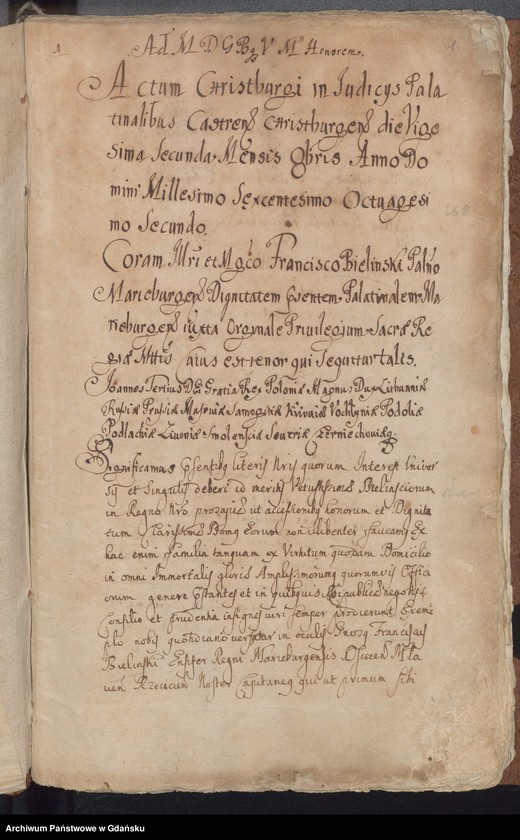 1 Ad M D G Bq V Mæ Honorem. 1.
Actum Christburgi in Judicys Pala
tinalibus Castren Christburgen die Vige
sima Secunda Mensis 8bris Anno Do
mini Millesimo Sexcentesimo Octuagesi
mo Secundo.
Coram Illri et Mgco Francisco Bielinski Palno
Marieburgen Dignitatem psentem Palatinalem Ma
rieburgen iuxta Orginale Privilegium Sacræ Re
giæ Mttis cuius est tenor qui sequitur talis.
Joannes Tertius Dei Gratia Rex Poloniæ Magnus Dux Lithuaniæ
Russiæ Prussiæ Masoviæ Samogitiæ Kijoviæ Vochlyniæ Podoliæ
Podlachiæ Livoniæ Smolensciæ Severiæ Czerniechoviæq
Significamus psentibq literis Nris quorum Interest Univer
sis et Singulis deberi id meritis Vetustissimæ Bielinsciorum
in Regno Nro prozapiæ ut accessionibq honorum et Dignita
tum Clarissimæ Domq Eorum non illibenter faveamq Ex
hac enim familia tanquam ex Virtutum quodam Domicilio
in omni Immortalis gloriæ Amplissimorumq quorumvis Offici
orum genere pstantes et in quibusvis Reipublicæ negotys
Consilio et prudentia insignes viri semper prodierunt Exem
plo nobis quotidiano versatur in oculis Gnosq Franciscus
Bielinski Ensifer Regni Marieburgensis Osiecen Mla
ven Rzeczicen Noster Capitaneq qui ut primum sibi
Archiwum Państwowe w Gdańsku